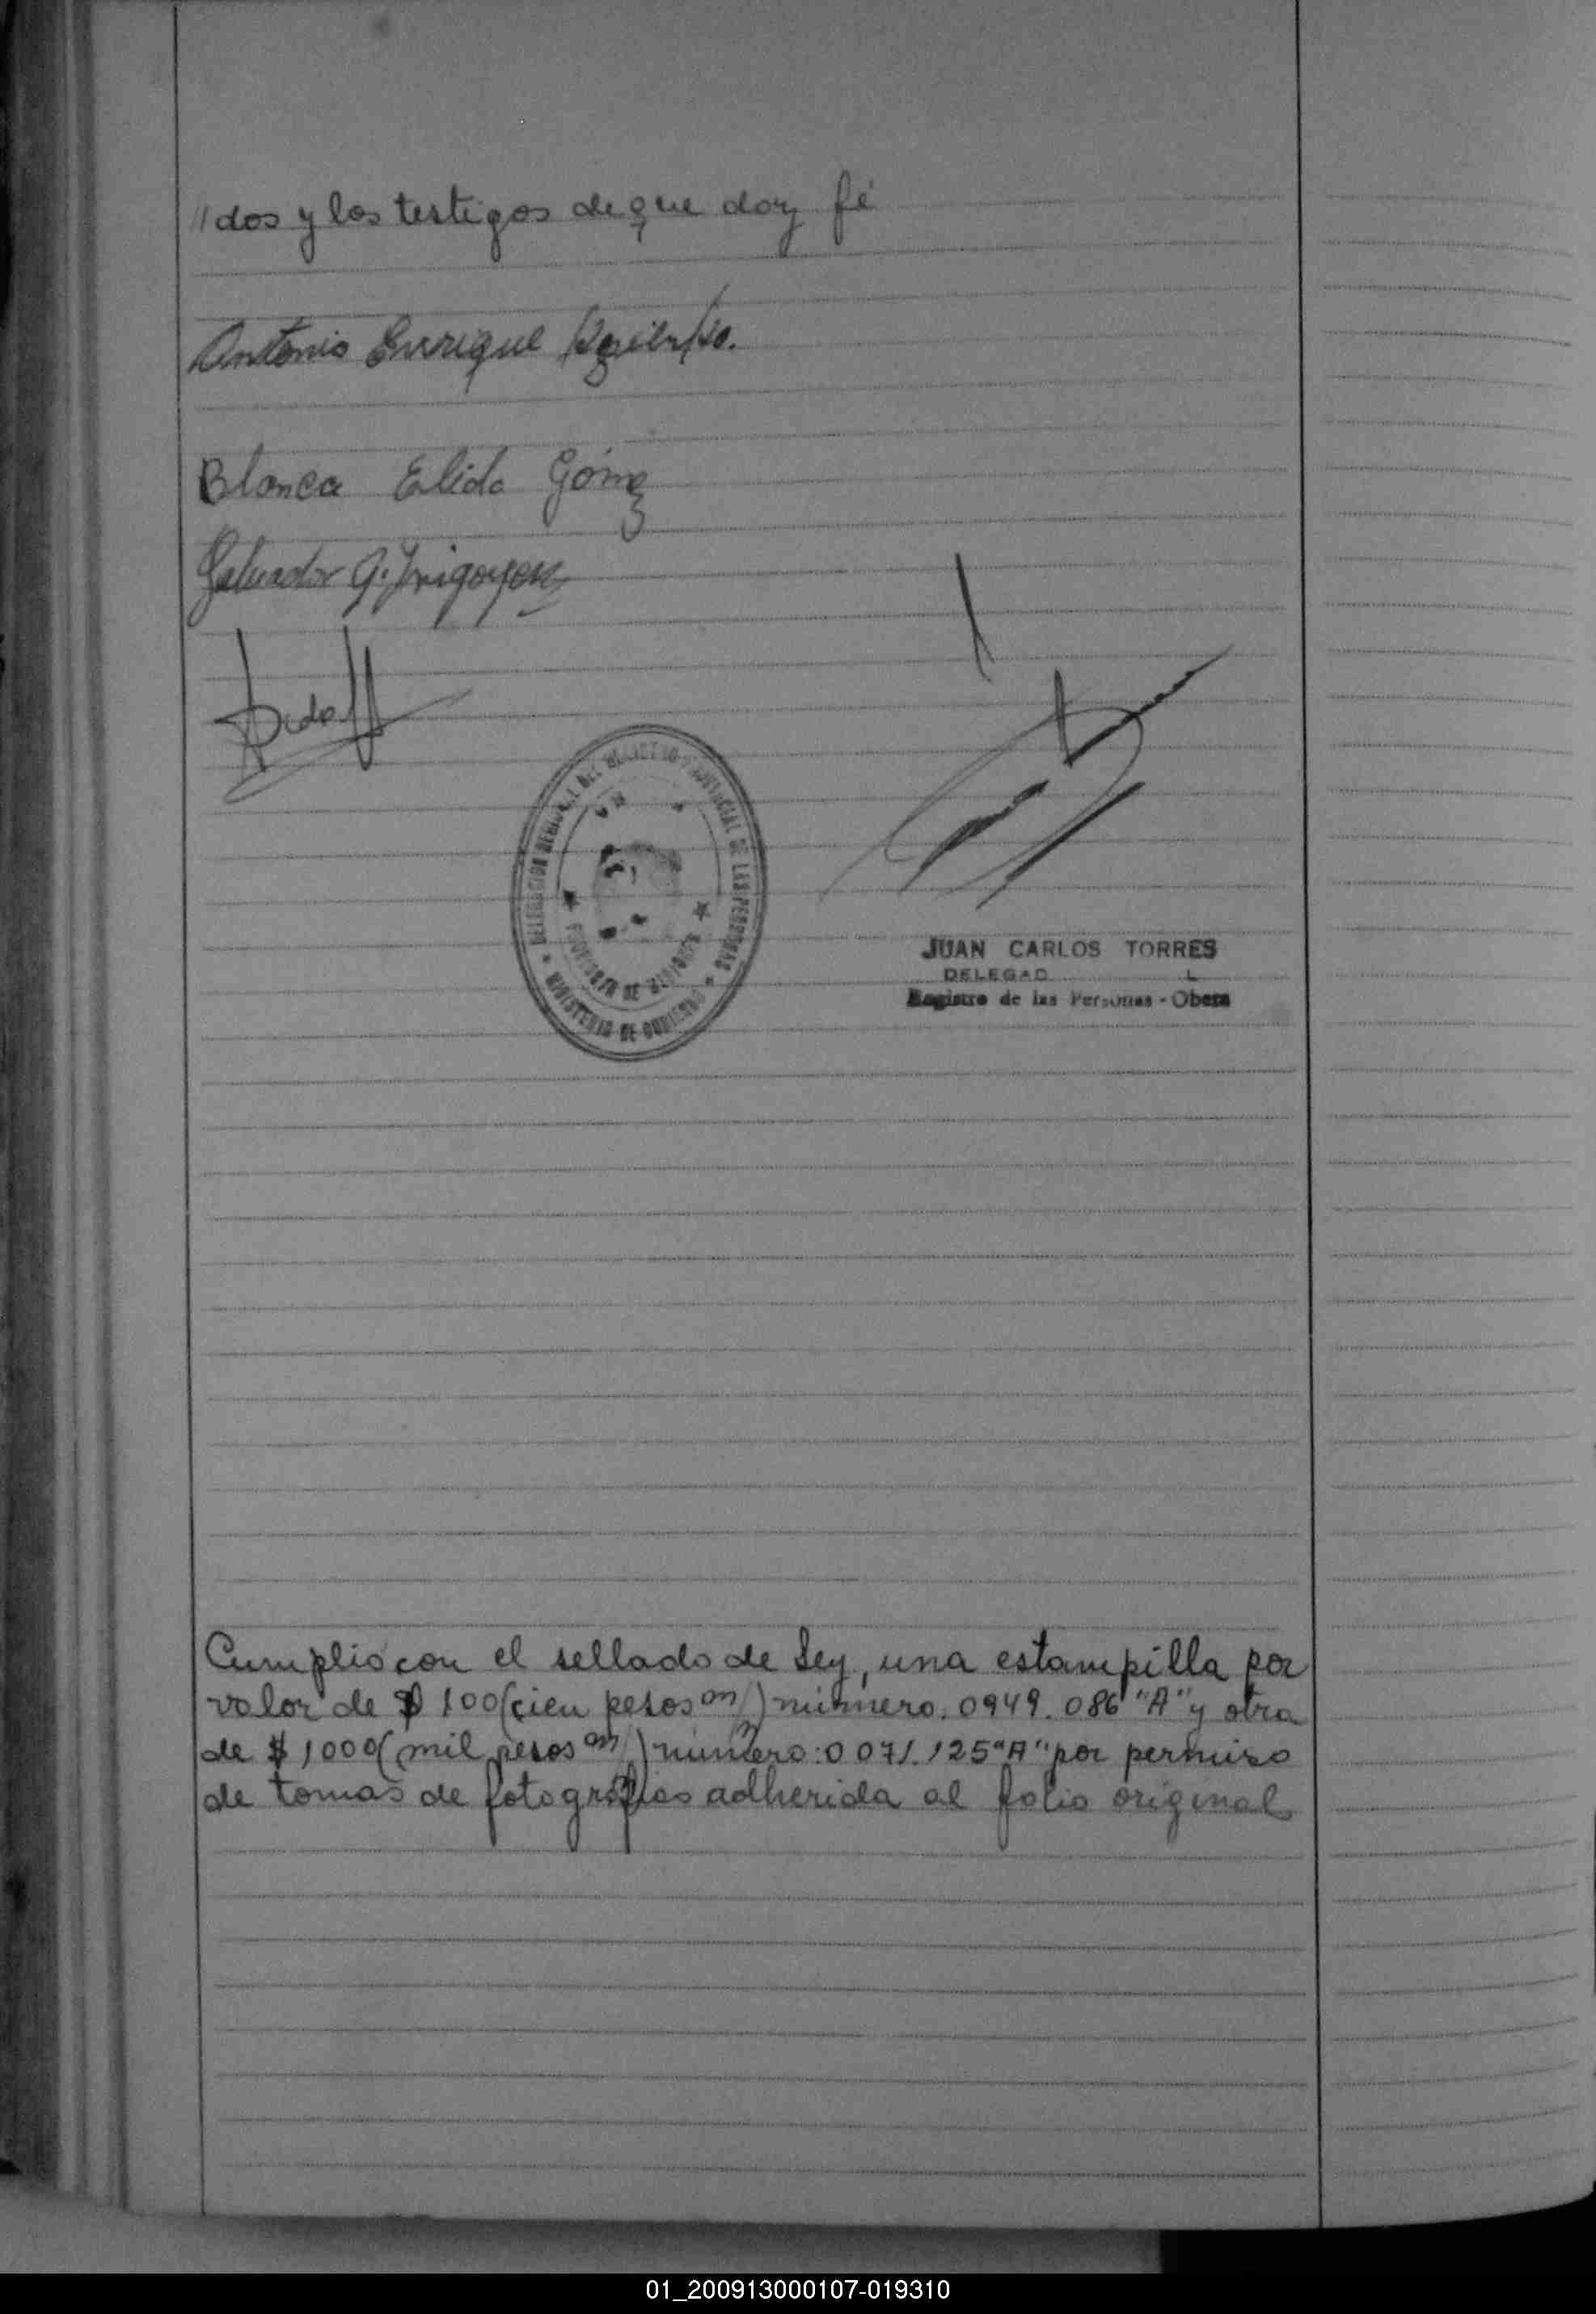 //dos y los testigos de que doy fé
Antonio Enrique
Blanca Elida Gómez
Salvador G. Irigoyen
DELEGACION DEL REGISTRO PROVINCIAL DE LAS PERSONAS
PROVINCIA DE MISIONES
MINISTERIO DE GOBIERNO
JUAN CARLOS TORRES
DELEGAD L
Registro de las Personas - Obera
Cumplió con el sellado de Ley, una estampilla por
valor de $ 100 (cien pesos m/n) número: 0949.086 "A" y otra
de $ 1000 (mil pesos m/n) número: 0071.125 "A" por permiso
de tomas de fotografias adherida al folio original
01_200913000107-019310